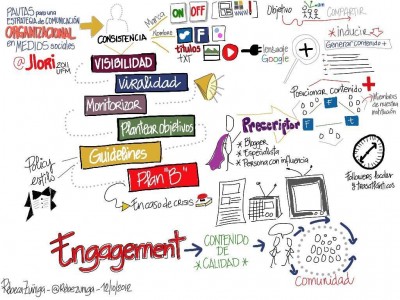 PAUTAS para una
ESTRATEGIA de COMUNICACIÓN
ORGANIZACIONAL
en MEDIOS sociales
@Jlori 2011
UFM
CONSISTENCIA
Marca
ON OFF
WWW
Nombre
títulos
txt
lenguaje
Google
Objetivo
COMPARTIR
*inducir
Generar contenido +
Posicionar contenido
*Miembros
de nuestra
institución
VISIBILIDAD
Viralidad
Monitorizar
Plantear objetivos
Guidelines
Plan "B"
En caso de crisis
Policy
estilo
Prescriptor
* Blogger
* Especialista
* Persona con influencia
Followers locales
y trasatlánticos
Engagement
CONTENIDO
DE
CALIDAD*
Comunidad
Rebeca Zuñiga - @Rebezuniga - 12/10/2012